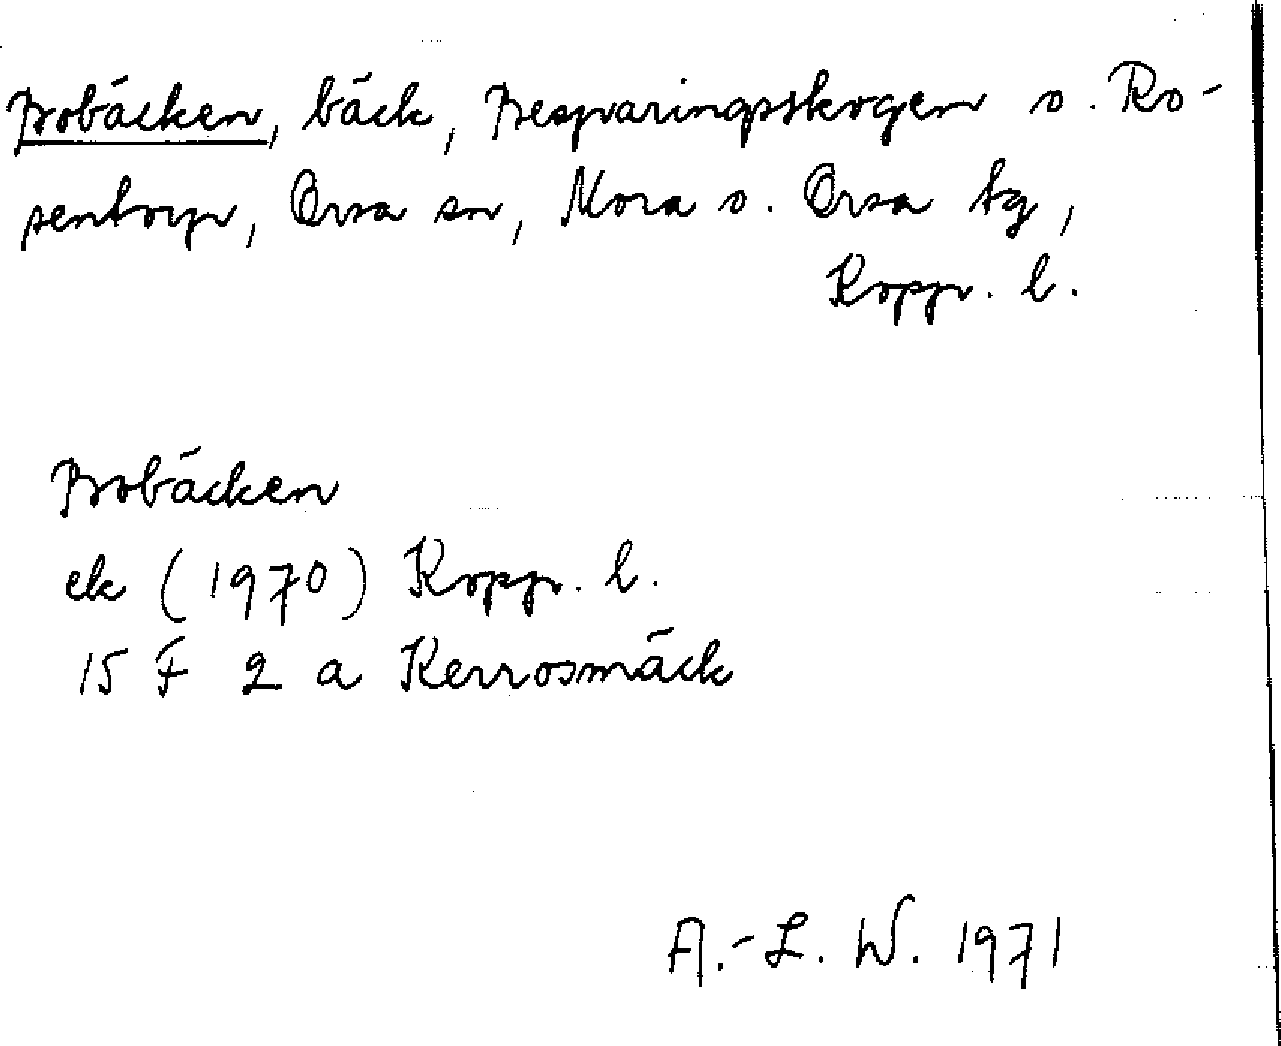 Bobäcken, bäck, Besparingsskogen o. Ro-
sentorp, Orsa sn, Mora o. Orsa tg,
Kopp. l.
Bobäcken
ek (1970) Kopp. l.
15 F 2 a Kerrosmäck
A.-L. W. 1971